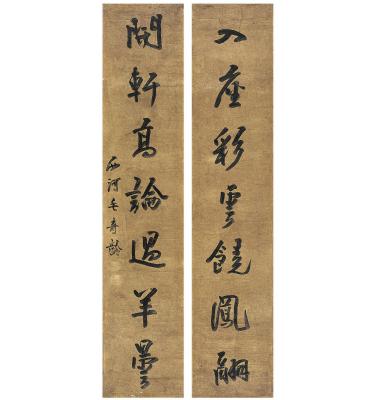 入座彩雲饒鳳翮
開軒高論過羊曇
西河毛奇齡